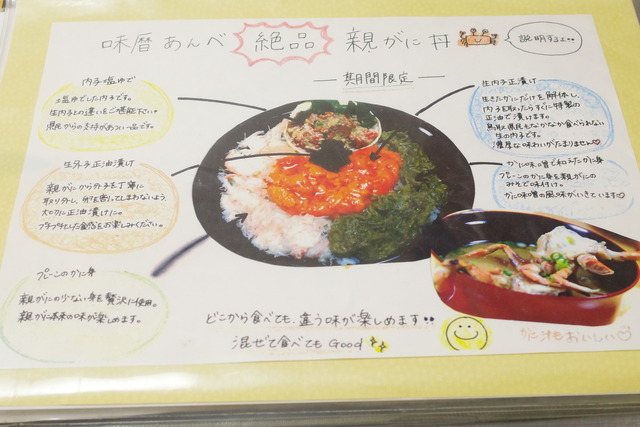 味暦あんべ 絶品 親がに丼
説明するよ
期間限定
内子塩ゆで
塩ゆでした内子です。
生内子との違いをご堪能下さい。
県民からの支持があつい一品です。
生外子正油漬け
親がにから外子を丁寧に
卵を
大切に正油漬けに。
プチプチとした食感をお楽しみください。
プレーンのかに身
親がにの少ない身を贅沢に使用。
親がに本来の味が楽しめます。
生内子正油漬け
生きたかにだけを解体し、
内子を取ったらすぐに特製の
正油で漬けます。
鳥取県民もなかなか食べられない
生の内子です。
濃厚な味わいがたまりません♡
かに味噌で和えたかに身
プレーンのかに身を親がにの
みそで味付け。
かに味噌の風味がいきています♡
どこから食べても、違う味が楽しめます
混ぜて食べても Good
かに汁もおいしい♡